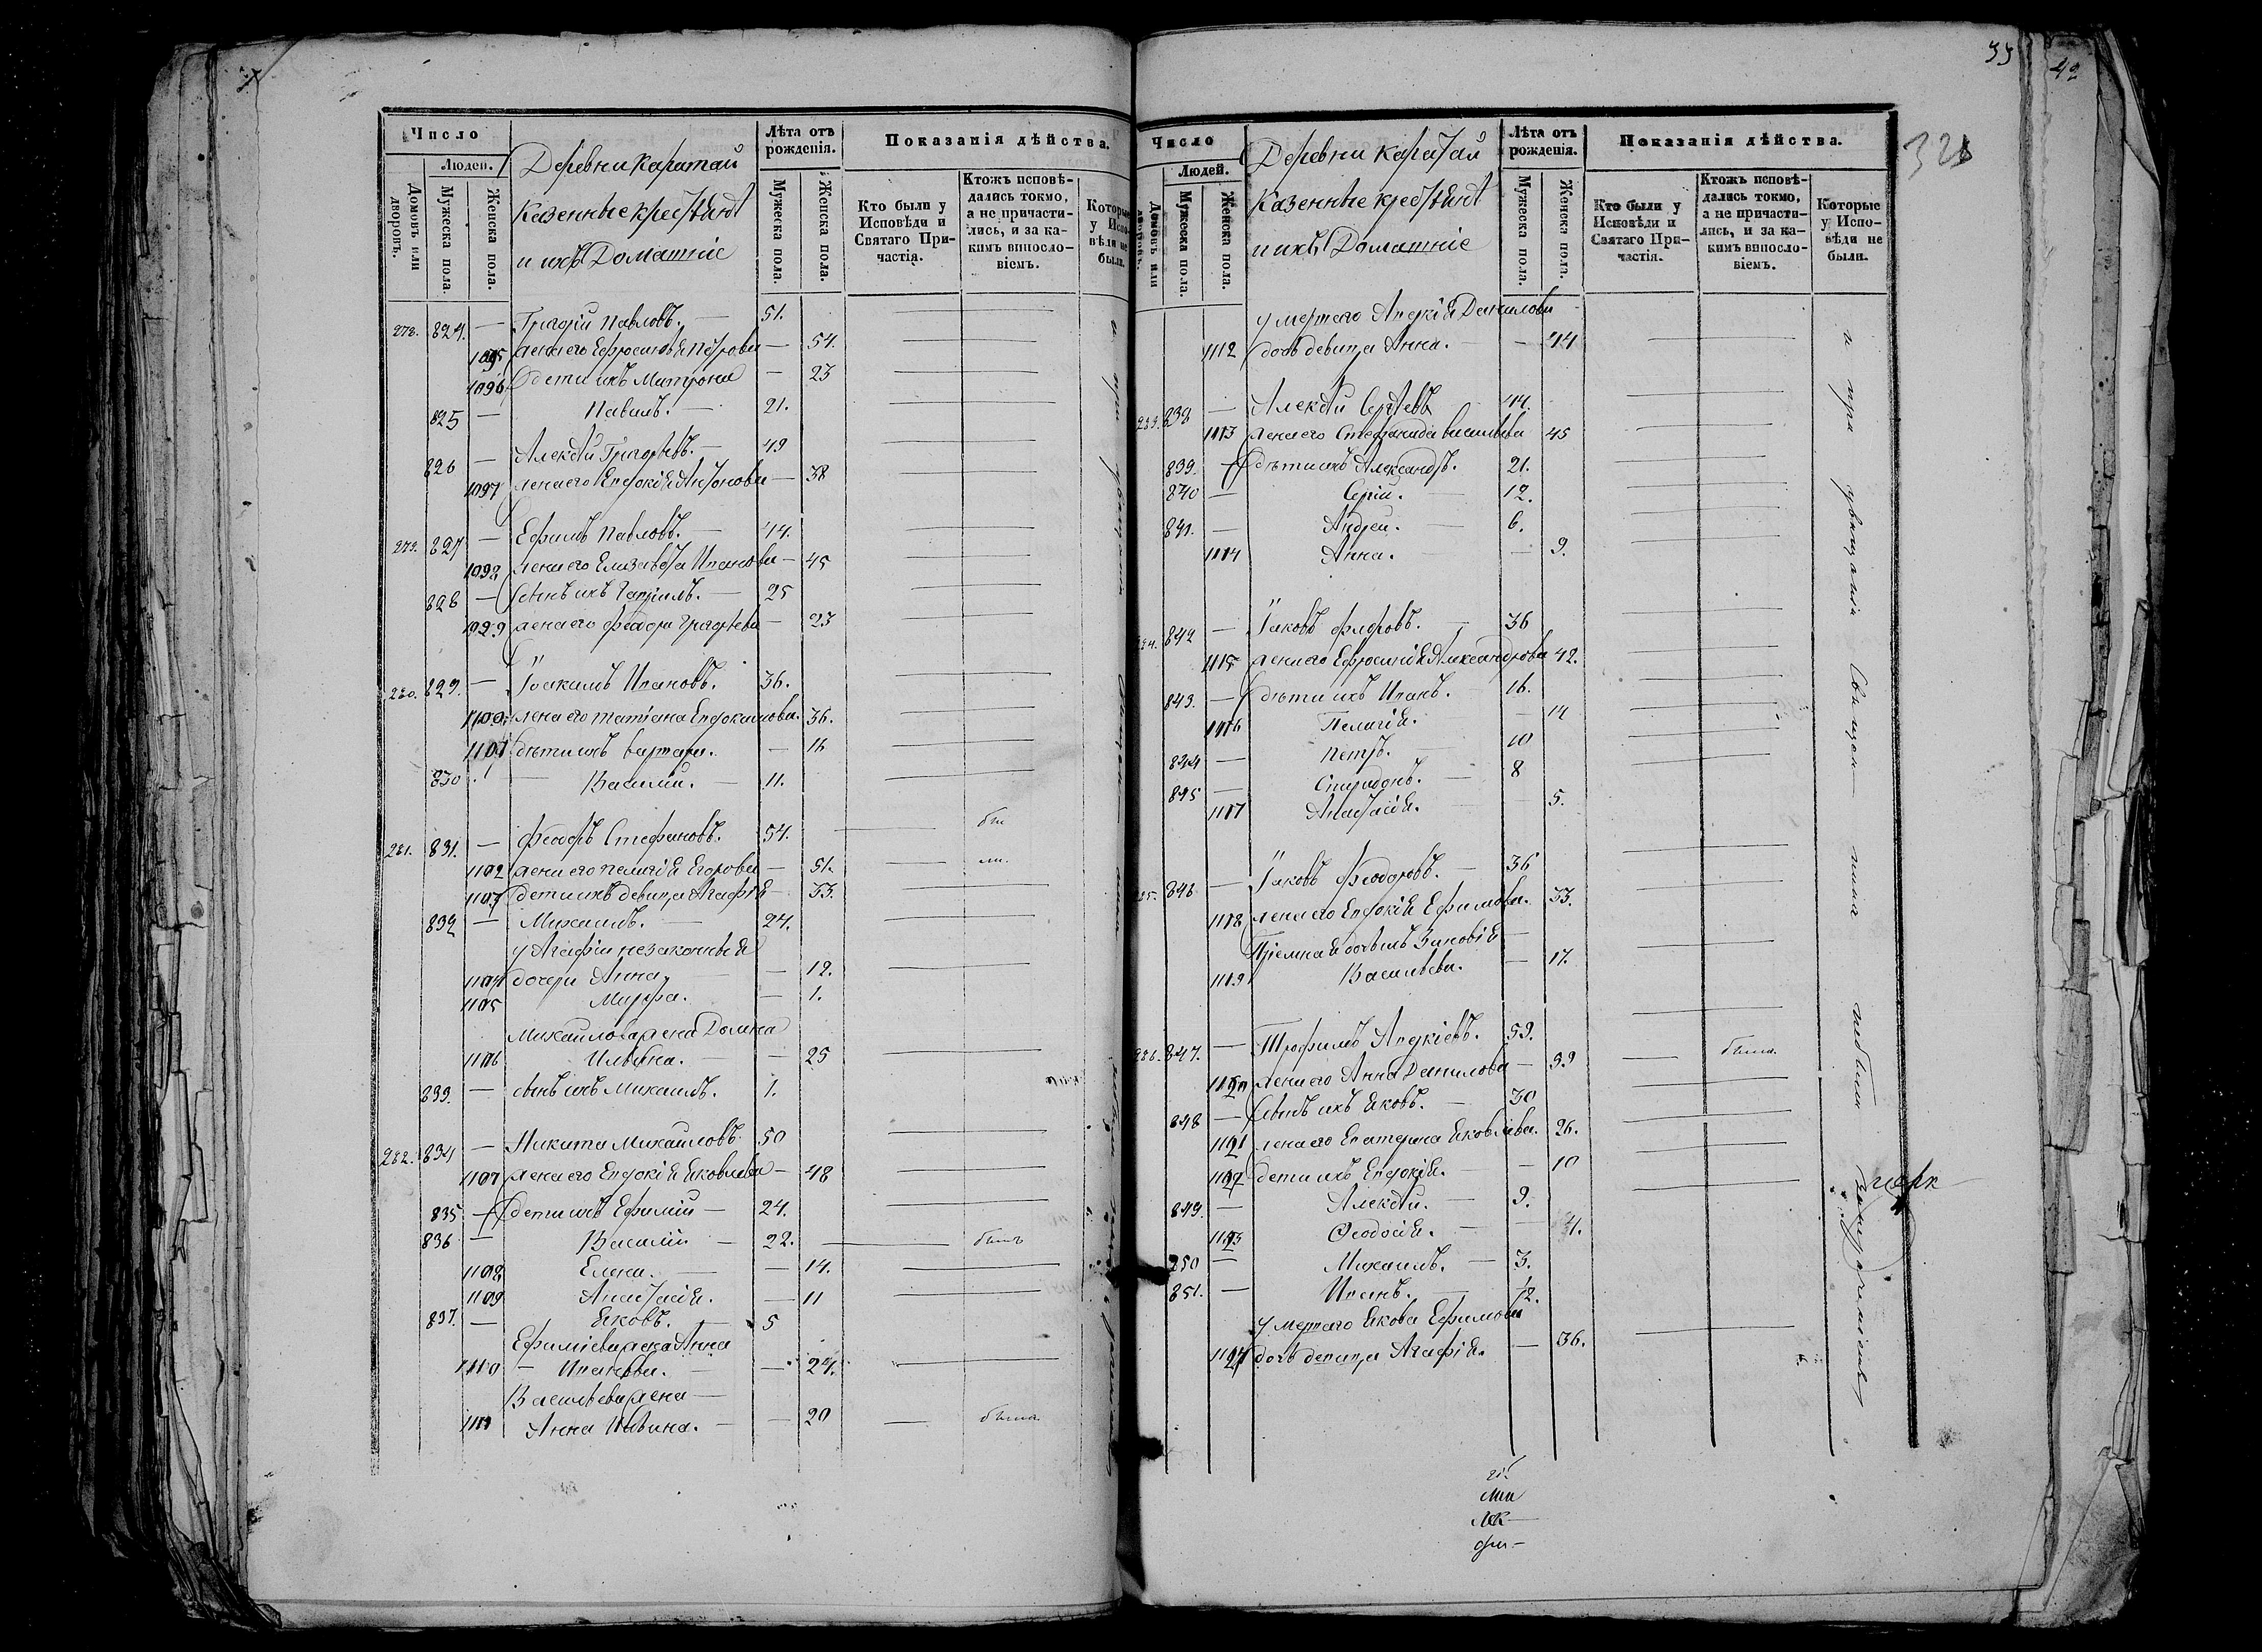 Число
Людей.
Домовъ или дворовъ.
Мужеска пола.
Женска пола.
Деревни Каратай
Казенные крестьянѣ
и ихъ Домашніе
Лѣта отъ рожденія.
Мужеска пола.
Женска пола.
Показанія дѣйства.
Кто были у Исповѣди и Святаго Причастія.
Ктожъ исповѣдались токмо, а не причастились, и за какимъ винословіемъ.
Которые у Исповѣди не были.
278. 824. — Григорій Павловъ. — 51.
1095 жена его Ефросинья Петрова — 54.
1096 дети ихъ Матрона — 23
825 — Павелъ. — 21.
826 — Алексѣй Григорьевъ. — 49
1097 жена его Евдокія Антонова — 38
279. 827 — Ефимъ Павловъ. — 44.
1098 жена его Елизавета Иванова — 45
828 — сынъ ихъ Гавриилъ. — 25
1099 жена его Феодора Григорьева — 23
280. 829. — Іоакимъ Ивановъ. 36.
1100. жена его Татіана Евдокимова. 36.
1101 дѣти ихъ Варвара. — 16
830 — Василій. — 11.
281. 831. — Феодоръ Стефановъ. 54.
1102 жена его Пелагія Егорова — 51.
1103 дети ихъ девица Агафія — 33.
832 — Михаилъ. 24.
у Агафіи незаконныя
1104 дочери Анна — 12.
1105 Марфа. — 1.
Михайлова жена Домна
1106 Ильина. — 25
833. — сынъ ихъ Михаилъ. 1.
282. 834 — Никита Михайловъ 50
1107 жена его Евдокія Яковлева — 48
835 — дети ихъ Ефимій — 24.
836 — Василій — 22. — былъ
1108 Елена. — 14.
1109 Анастасія. — 11
837. — Яковъ. 5
Ефиміева жена Анна
1110 — Иванова. — 24.
Васильева жена —
1111 Анна — 20 — была.
33
42
Число
Людей.
Домовъ или дворовъ.
Мужеска пола.
Женска пола.
Деревни Каратай
Казенные крестьянѣ
и ихъ Домашніе
Лѣта отъ рожденія.
Мужеска пола.
Женска пола.
Показанія дѣйства.
Кто были у Исповѣди и Святаго Причастія.
Ктожъ исповѣдались токмо, а не причастились, и за какимъ винословіемъ.
Которые у Исповѣди не были.
умершаго Авдкія Данилова
1112 дочь девица Анна. — 44
283. 838 — Алексѣй Сергѣевъ 44.
1113 жена его Стефанида Васильева 45
839. — дѣти ихъ Александръ. 21.
840 — Сергій. — 12.
841. — Андрей. — 6.
1114 Анна. — 9.
284. 842 — Іаковъ Федоровъ. 36
1115 жена его Ефросинія Александрова 42.
843. — дѣти ихъ Иванъ. 16.
1116 Пелагія. — 14
844 — Петръ. 10
845 — Спиридонъ. — 8
1117 Анастасія. — 5.
285. 846 — Іаковъ Феодоровъ. — 36
1118 жена его Евдокія Ефимова. 33.
Пріемная дочь ихъ Зиновія
1119 Васильева. — 17.
286. 847. — Трофимъ Авдкіевъ. 59.
1120 жена его Анна Данилова — 59 — была.
848 — сынъ ихъ Яковъ. — 30
1121 жена его Екатерина Яковлева. 26.
1122 дети ихъ Евдокія. — 10
849. — Алексѣй. — 9.
1123 Феодосія. — 4.
850 — Михаилъ. — 3.
851. — Иванъ. 1/2.
умершаго Якова Ефимова
1124 дочь девица Агафія. — 36.